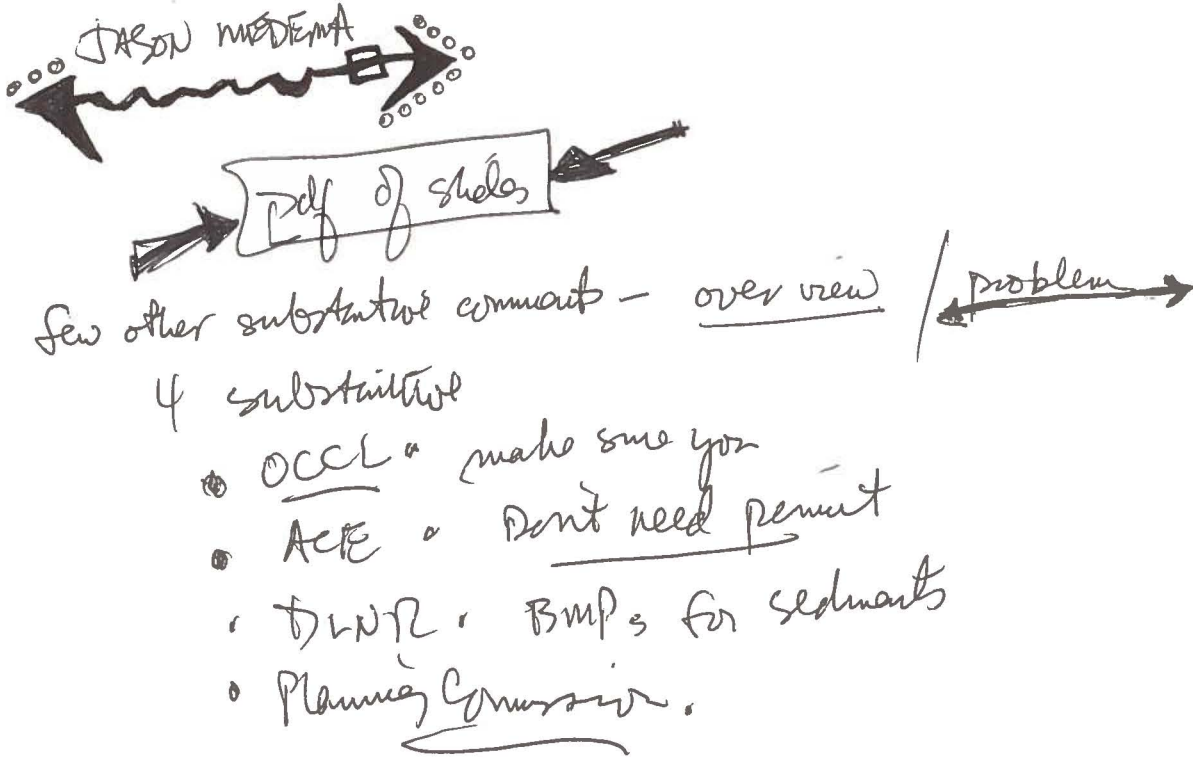 JASON MEDEMA
Pdf of slides
few other substantive comments – over view / problem
4 substantive
• OCCL • make sure you
• ACE • Don't need permit
• DLNR • BMPs for sediments
• Planning Commission.